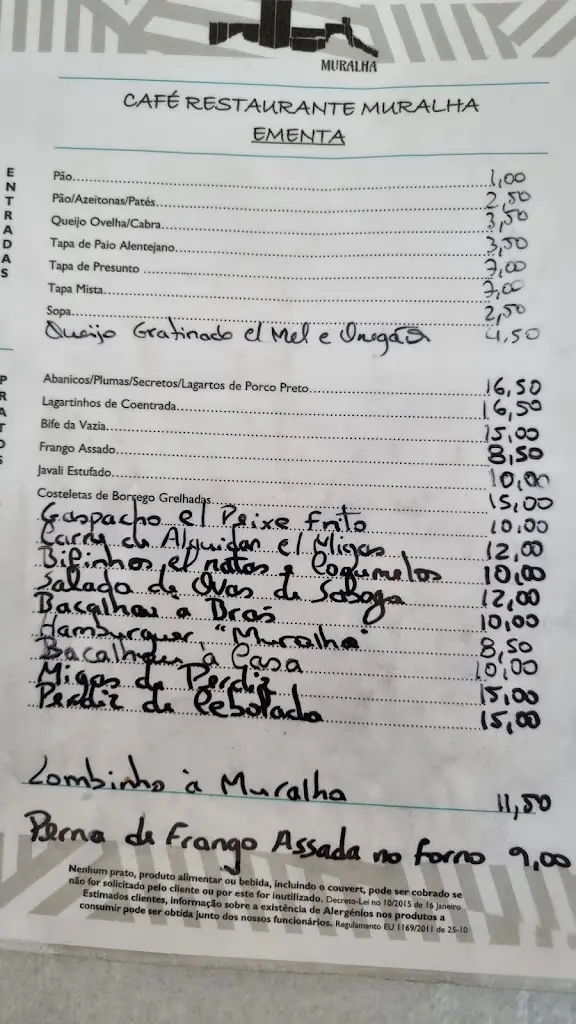 MURALHA
CAFÉ RESTAURANTE MURALHA
EMENTA
ENTRADAS
Pão 1,00
Pão/Azeitonas/Patés 2,50
Queijo Ovelha/Cabra 3,50
Tapa de Paio Alentejano 3,50
Tapa de Presunto 7,00
Tapa Mista 7,00
Sopa 2,50
Queijo Gratinado c/ Mel e Oregãos 4,50
PRATOS
Abanicos/Plumas/Secretos/Lagartos de Porco Preto 16,50
Lagartinhos de Coentrada 16,50
Bife da Vazia 15,00
Frango Assado 8,50
Javali Estufado 10,00
Costeletas de Borrego Grelhadas 15,00
Gaspacho c/ Peixe frito 10,00
Carne de Alguidar c/ Migas 12,00
Bifinhos c/ natas e Cogumelos 10,00
Salada de Ovas de Saboga 12,00
Bacalhau a Bras 10,00
Hamburguer "Muralha" 8,50
Bacalhau à Casa 10,00
Migas de Perdiz 15,00
Perdiz de Cebolada 15,00
Lombinho à Muralha 11,50
Perna de Frango Assada no forno 9,00
Nenhum prato, produto alimentar ou bebida, incluindo o couvert, pode ser cobrado se
não for solicitado pelo cliente ou por este for inutilizado. Decreto-Lei no 10/2015 de 16 Janeiro
Estimados clientes, informação sobre a existência de Alergénios nos produtos a
consumir pode ser obtida junto dos nossos funcionários. Regulamento EU 1169/2011 de 25-10